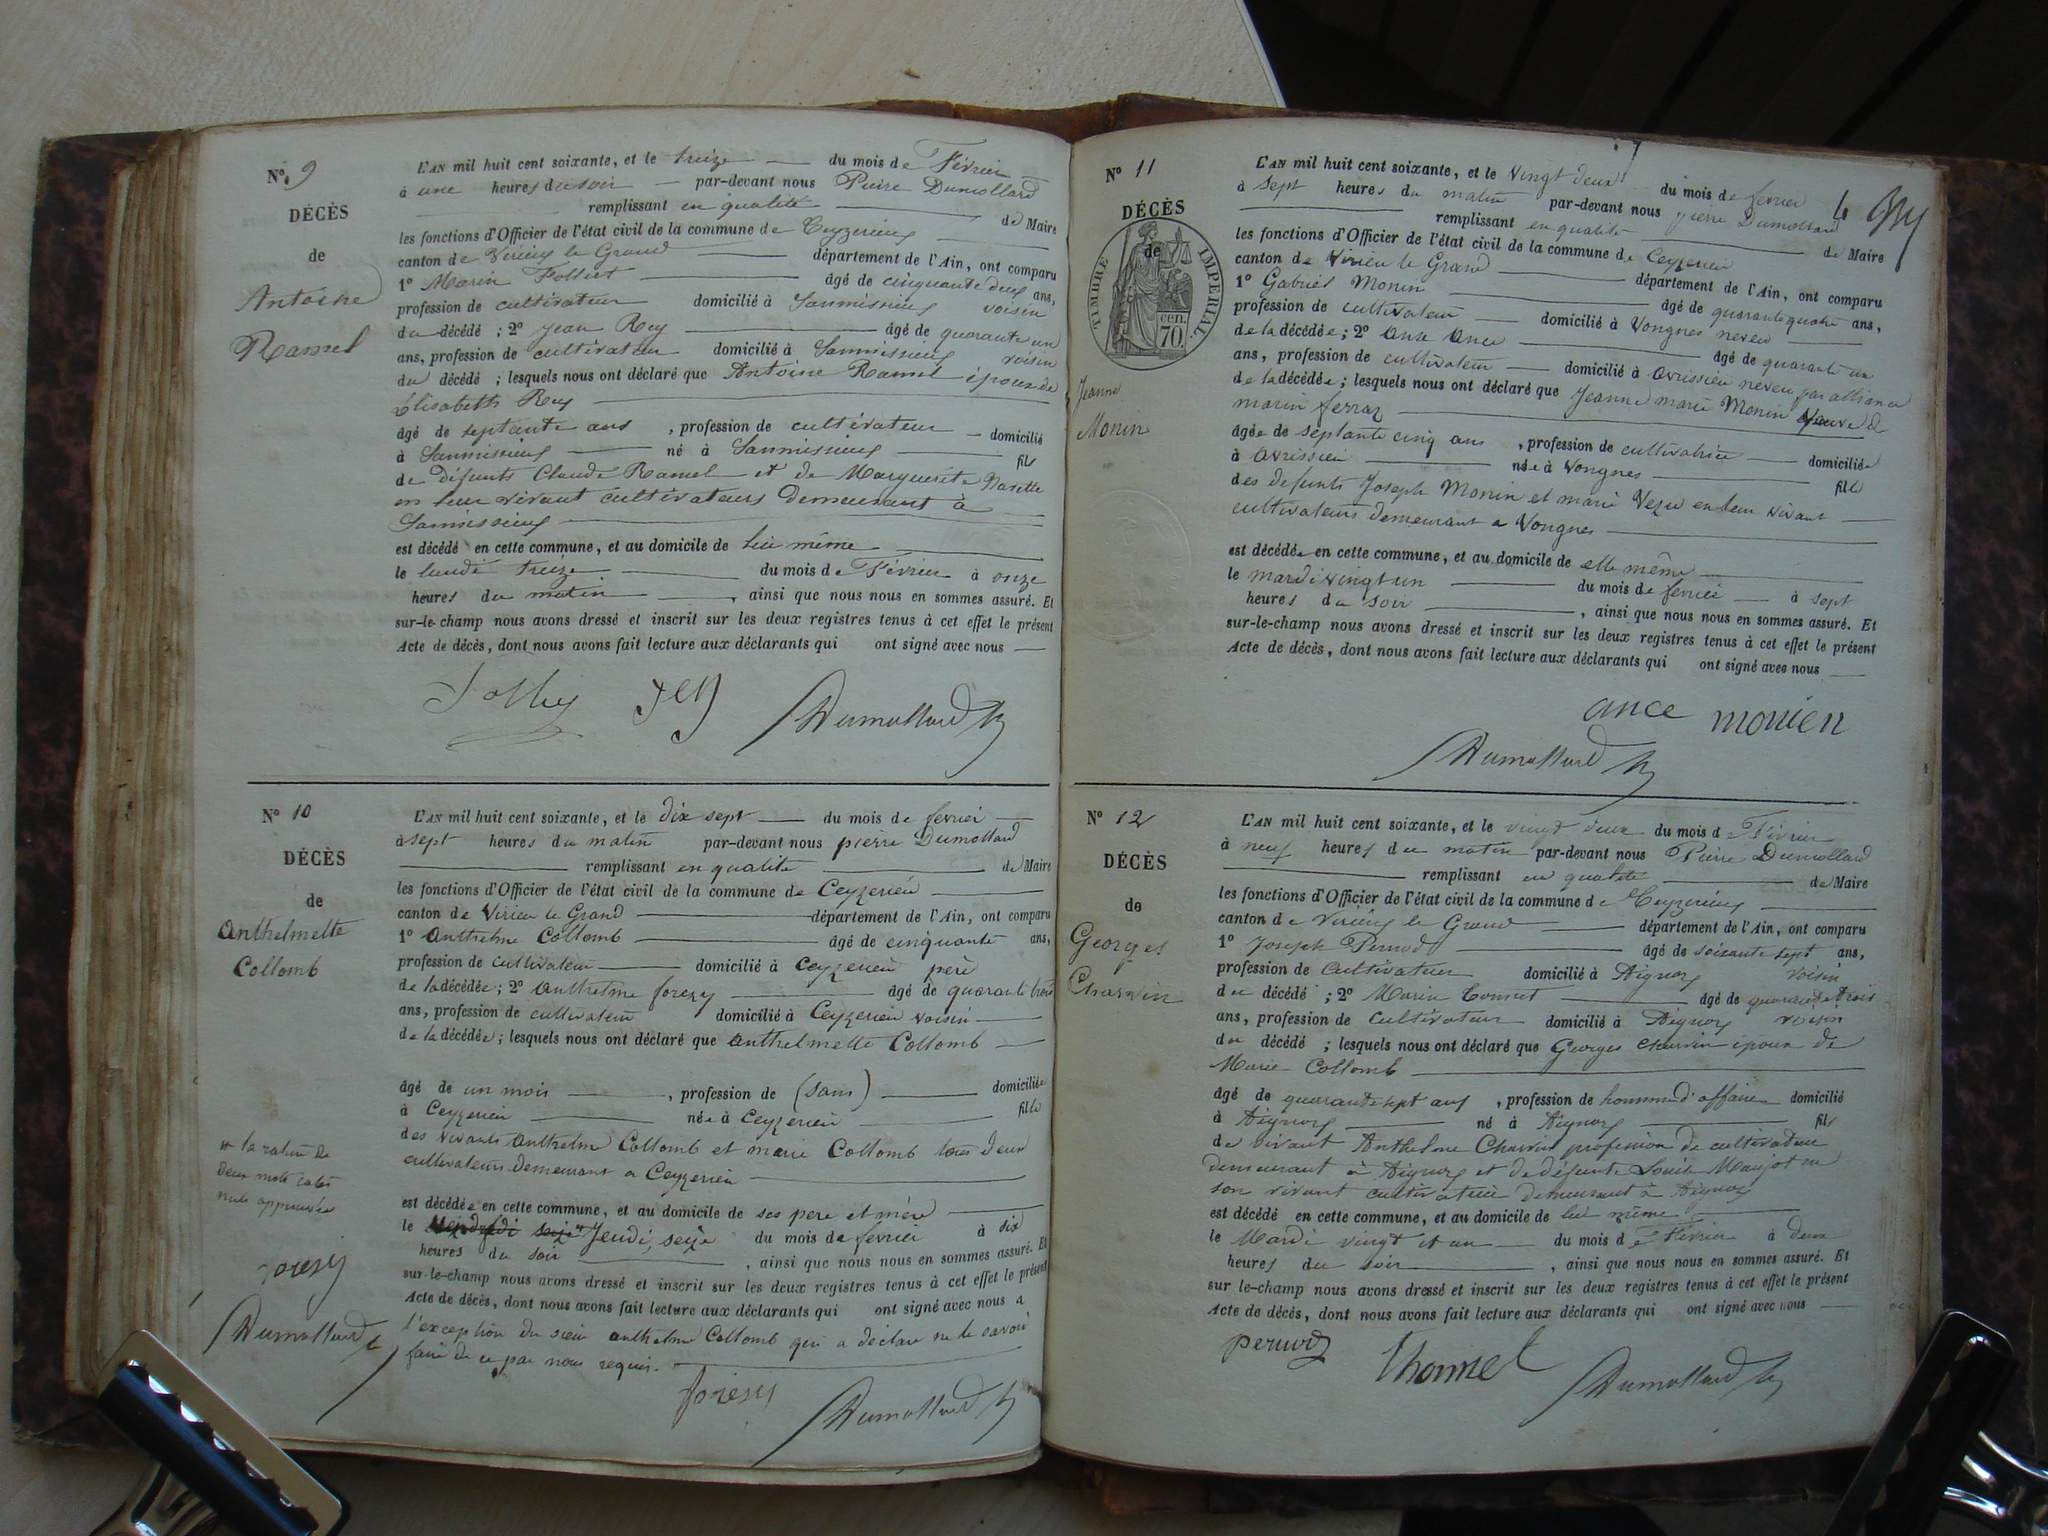 N° 9
DÉCÈS
de
Antoine
Ramel
L'AN mil huit cent soixante, et le treize du mois de Février
à une heures du soir par-devant nous Pierre Dumollard
remplissant en qualité de Maire
les fonctions d'Officier de l'état civil de la commune de Ceyzerieux
canton de Virieux le Grand département de l'Ain, ont comparu
1° Marin Folliet âgé de cinquante deux ans,
profession de cultivateur domicilié à Sanmissieux voisin
du décédé ; 2° Jean Rey âgé de quarante un
ans, profession de cultivateur domicilié à Sanmissieux voisin
du décédé ; lesquels nous ont déclaré que Antoine Ramel époux de
Élisabeth Rey
âgé de septante ans , profession de cultivateur domicilié
à Sanmissieux né à Sanmissieux fils
de défunts Claude Ramel et de Marguerite
en leur vivant cultivateurs demeurant à
Sanmissieux
est décédé en cette commune, et au domicile de lui même
le lundi treize du mois de Février à onze
heures du matin , ainsi que nous nous en sommes assuré. Et
sur-le-champ nous avons dressé et inscrit sur les deux registres tenus à cet effet le présent
Acte de décès, dont nous avons fait lecture aux déclarants qui ont signé avec nous
Dumollard
N° 10
DÉCÈS
de
Anthelmette
Collomb
L'AN mil huit cent soixante, et le dix sept du mois de fevrier
à sept heures du matin par-devant nous pierre Dumollard
remplissant en qualite de Maire
les fonctions d'Officier de l'état civil de la commune de Ceyzerieu
canton de Virieu le Grand département de l'Ain, ont comparu
1° Anthelme Collomb âgé de cinquante ans,
profession de cultivateur domicilié à Ceyzerieu père
de la décédée ; 2° Anthelme forezy âgé de quarante trois
ans, profession de cultivateur domicilié à Ceyzerieu voisin
de la décédée ; lesquels nous ont déclaré que Anthelmette Collomb
âgé de un mois , profession de (sans) domiciliée
à Ceyzerieu née à Ceyzerieu fille
des vivants Anthelme Collomb et marie Collomb tous deux
cultivateurs demeurant a Ceyzerieu
est décédée en cette commune, et au domicile de ses pere et mère
le vendredi seize Jeudi, seize du mois de fevrier à six
heures du soir , ainsi que nous nous en sommes assuré. Et
sur-le-champ nous avons dressé et inscrit sur les deux registres tenus à cet effet le présent
Acte de décès, dont nous avons fait lecture aux déclarants qui ont signé avec nous a
l'exception du sieur Anthelme Collomb qui a déclaré ne le savoir
faire de ce par nous requis.
la rature de
deux mots rayés
nuls approuvée
forezy
Dumollard
forezy Dumollard
N° 11
DÉCÈS
de
TIMBRE IMPERIAL
70 cen.
Jeanne
Monin
L'AN mil huit cent soixante, et le vingt deux du mois de fevrier
à sept heures du matin par-devant nous pierre Dumollard
remplissant en qualite de Maire
les fonctions d'Officier de l'état civil de la commune de Ceyzerieu
canton de Virieu le Grand département de l'Ain, ont comparu
1° Gabriel Monin âgé de quarante quatre ans,
profession de cultivateur domicilié à Vongnes neveu
de la décédée ; 2° Ance âgé de quarante un
ans, profession de cultivateur domicilié à Avrissieu neveu par alliance
de la décédée ; lesquels nous ont déclaré que Jeanne marie Monin veuve de
marin ferraz
âgée de septante cinq ans , profession de cultivatrice domiciliée
à Avrissieu née à Vongnes fille
des defunts Joseph Monin et marie Vezu en leur vivant
cultivateurs demeurant a Vongnes
est décédée en cette commune, et au domicile de elle même
le mardi vingt un du mois de fevrier à sept
heures du soir , ainsi que nous nous en sommes assuré. Et
sur-le-champ nous avons dressé et inscrit sur les deux registres tenus à cet effet le présent
Acte de décès, dont nous avons fait lecture aux déclarants qui ont signé avec nous
ance monien
Dumollard
N° 12
DÉCÈS
de
Georges
Charvin
L'AN mil huit cent soixante, et le vingt deux du mois de Février
à neuf heures du matin par-devant nous Pierre Dumollard
remplissant en qualité de Maire
les fonctions d'Officier de l'état civil de la commune de Ceyzerieux
canton de Virieux le Grand département de l'Ain, ont comparu
1° Joseph Pernod âgé de soixante sept ans,
profession de Cultivateur domicilié à Aignoz voisin
du décédé ; 2° Marin âgé de quarante trois
ans, profession de Cultivateur domicilié à Aignoz voisin
du décédé ; lesquels nous ont déclaré que Georges Charvin époux de
Marie Collomb
âgé de quarante sept ans , profession de homme d'affaires domicilié
à Aignoz né à Aignoz fils
de vivant Anthelme Charvin profession de cultivateur
demeurant à Aignoz et de défunte Louise Maujot en
son vivant cultivatrice demeurant à Aignoz
est décédé en cette commune, et au domicile de lui même
le Mardi vingt et un du mois de Février à deux
heures du soir , ainsi que nous nous en sommes assuré. Et
sur le-champ nous avons dressé et inscrit sur les deux registres tenus à cet effet le présent
Acte de décès, dont nous avons fait lecture aux déclarants qui ont signé avec nous
pernod Dumollard